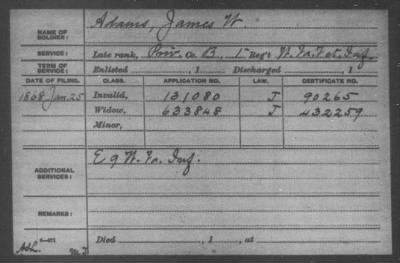 NAME OF SOLDIER: Adams, James W.
SERVICE: Late rank, Priv. Co. B, 1" Reg't W. Va. Vet. Inf.
TERM OF SERVICE: Enlisted , 1 Discharged , 1
DATE OF FILING. CLASS. APPLICATION NO. LAW. CERTIFICATE NO.
1868 Jan. 25 Invalid, 131080 J 90265
Widow, 633848 J 432259
Minor,
ADDITIONAL SERVICES: E 9 W. Va. Inf.
REMARKS:
Died , 1 , at